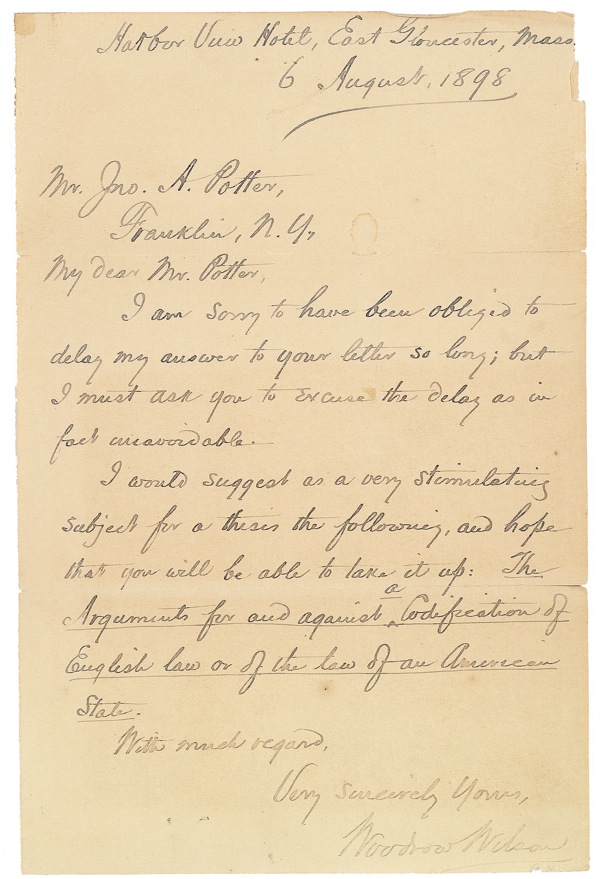 Harbor View Hotel, East Gloucester, Mass.
6 August, 1898
Mr. Jno. A. Potter,
Franklin, N. Y.,
My dear Mr. Potter,
I am sorry to have been obliged to
delay my answer to your letter so long; but
I must ask you to excuse the delay as in
fact unavoidable.
I would suggest as a very stimulating
subject for a thesis the following, and hope
that you will be able to take it up: The
Arguments for and against a Codification of
English law or of the law of an American
State.
With much regard,
Very sincerely Yours,
Woodrow Wilson